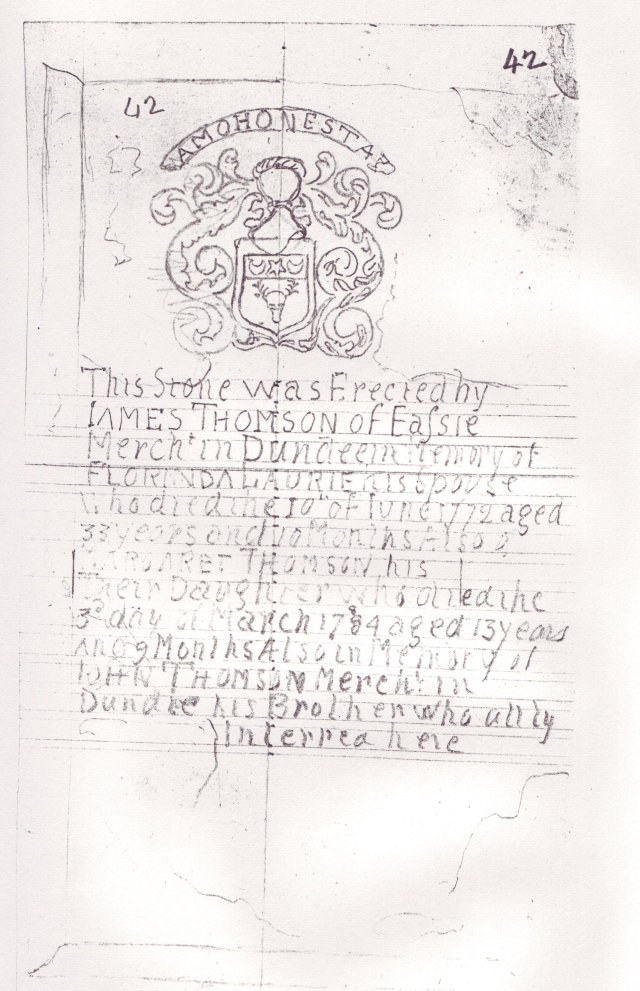 42
42
AMOHONESTA
This Stone was Erected by
IAMES THOMSON of Eaſsie
Mercht in Dundee in Memory of
FLORINDA LAURIE his Spouse
who died the 10th of Iune 1772 aged
33 years and 10 Months Also of
MARGARET THOMSON his
Their Daughter who died the
3d day of March 1784 aged 13 years
And 9 Months Also in Memory of
IOHN THOMSON Mercht in
Dundee his Brother who all ly
Interred here